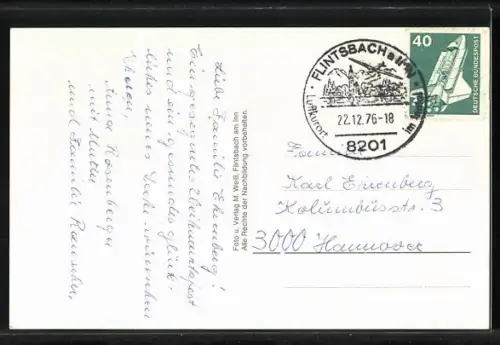 Liebe Familie Ehrenberg!
Ein gesegnetes Weihnachtsfest
und ein gesundes glück-
liches neues Jahr wünschen
Ihnen,
Anna Rosenberger
mit Mutter
und Familie
Foto u. Verlag M. Weiß, Flintsbach am Inn
Alle Rechte der Nachbildung vorbehalten.
FLINTSBACH a. INN
Luftkurort
22.12.76-18
8201
40
DEUTSCHE BUNDESPOST
Karl Ehrenberg
Kolumbusstr. 3
3000 Hannover